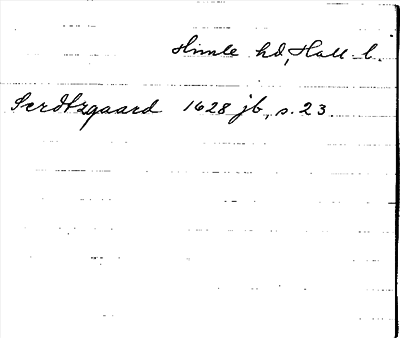 Himle hd, Hall l.
Serdtzgaard 1628 jb, s. 23.